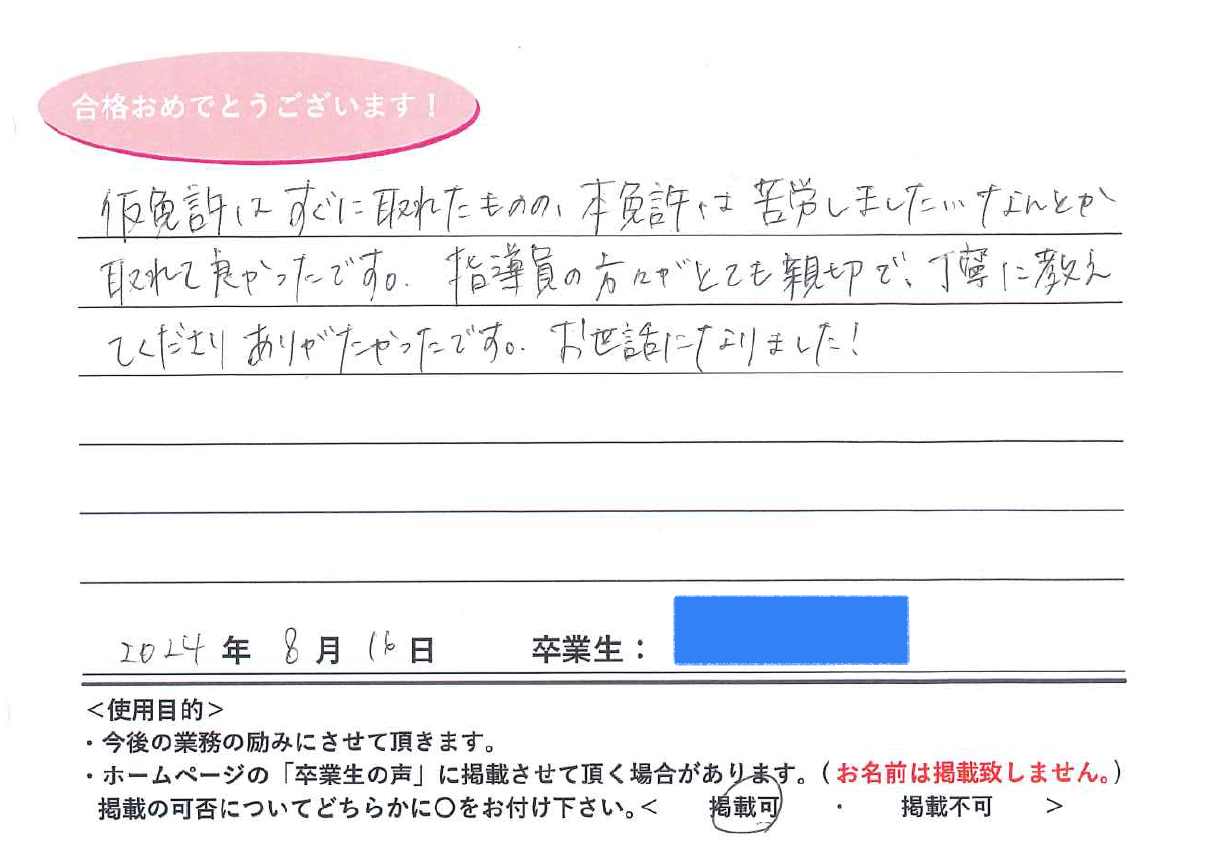 合格おめでとうございます！
仮免許はすぐに取れたものの、本免許は苦労しました…なんとか
取れて良かったです。指導員の方々がとても親切で、丁寧に教え
てくださりありがたかったです。お世話になりました！
2024年 8月 16日 卒業生：
＜使用目的＞
・今後の業務の励みにさせて頂きます。
・ホームページの「卒業生の声」に掲載させて頂く場合があります。（お名前は掲載致しません。）
掲載の可否についてどちらかに〇をお付け下さい。＜ 掲載可 ・ 掲載不可 ＞